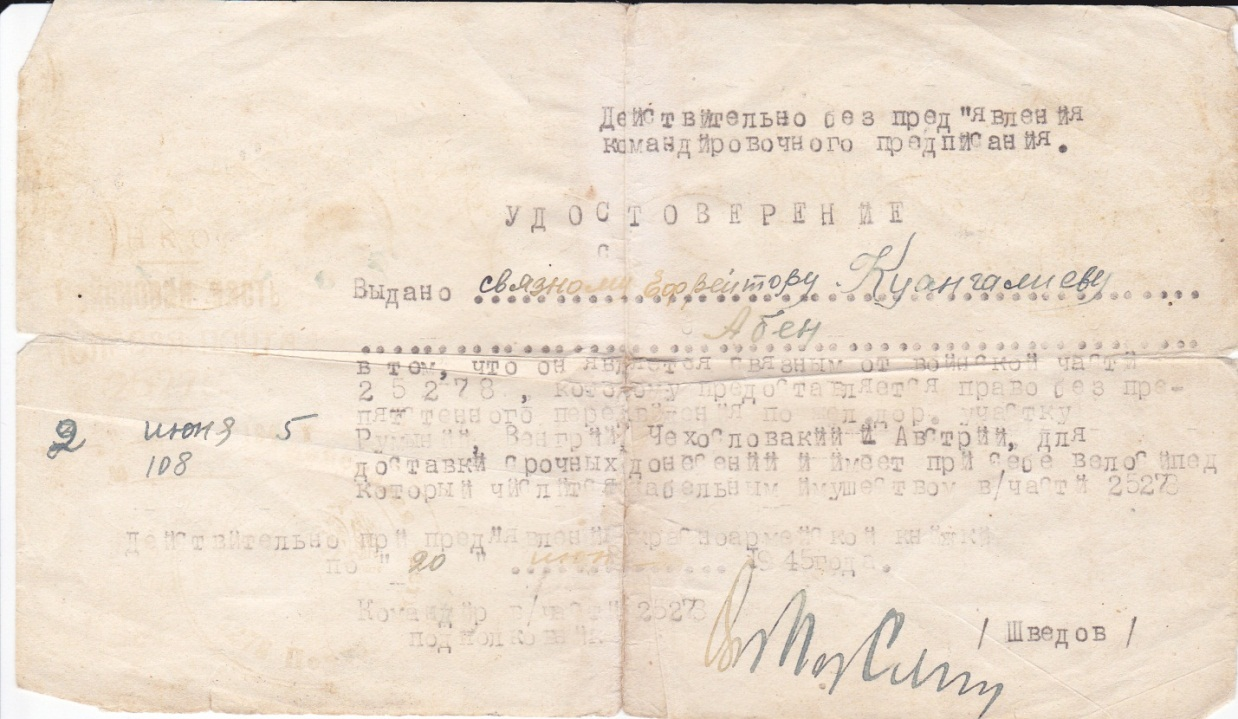 Действительно без пред"явления
командировочного предписания.
УДОСТОВЕРЕНИЕ
с
Выдано связному Ефрейтору Куангалиеву
Абен
в том, что он является связным от войнской части
25278, которому предоставляется право без пре-
пятственного передвижения по жел.дор. участку
Румынии, Венгрии, Чехословакии и Австрии, для
доставки срочных донесений и имеет при себе велосипед
который числится табельным имуществом в/части 25278
2 июня 5
108
Действительно при пред"явлении красноармейской книжки
по "20" июня 1945года.
Командир в/части 25278
подполковник
/ Шведов /